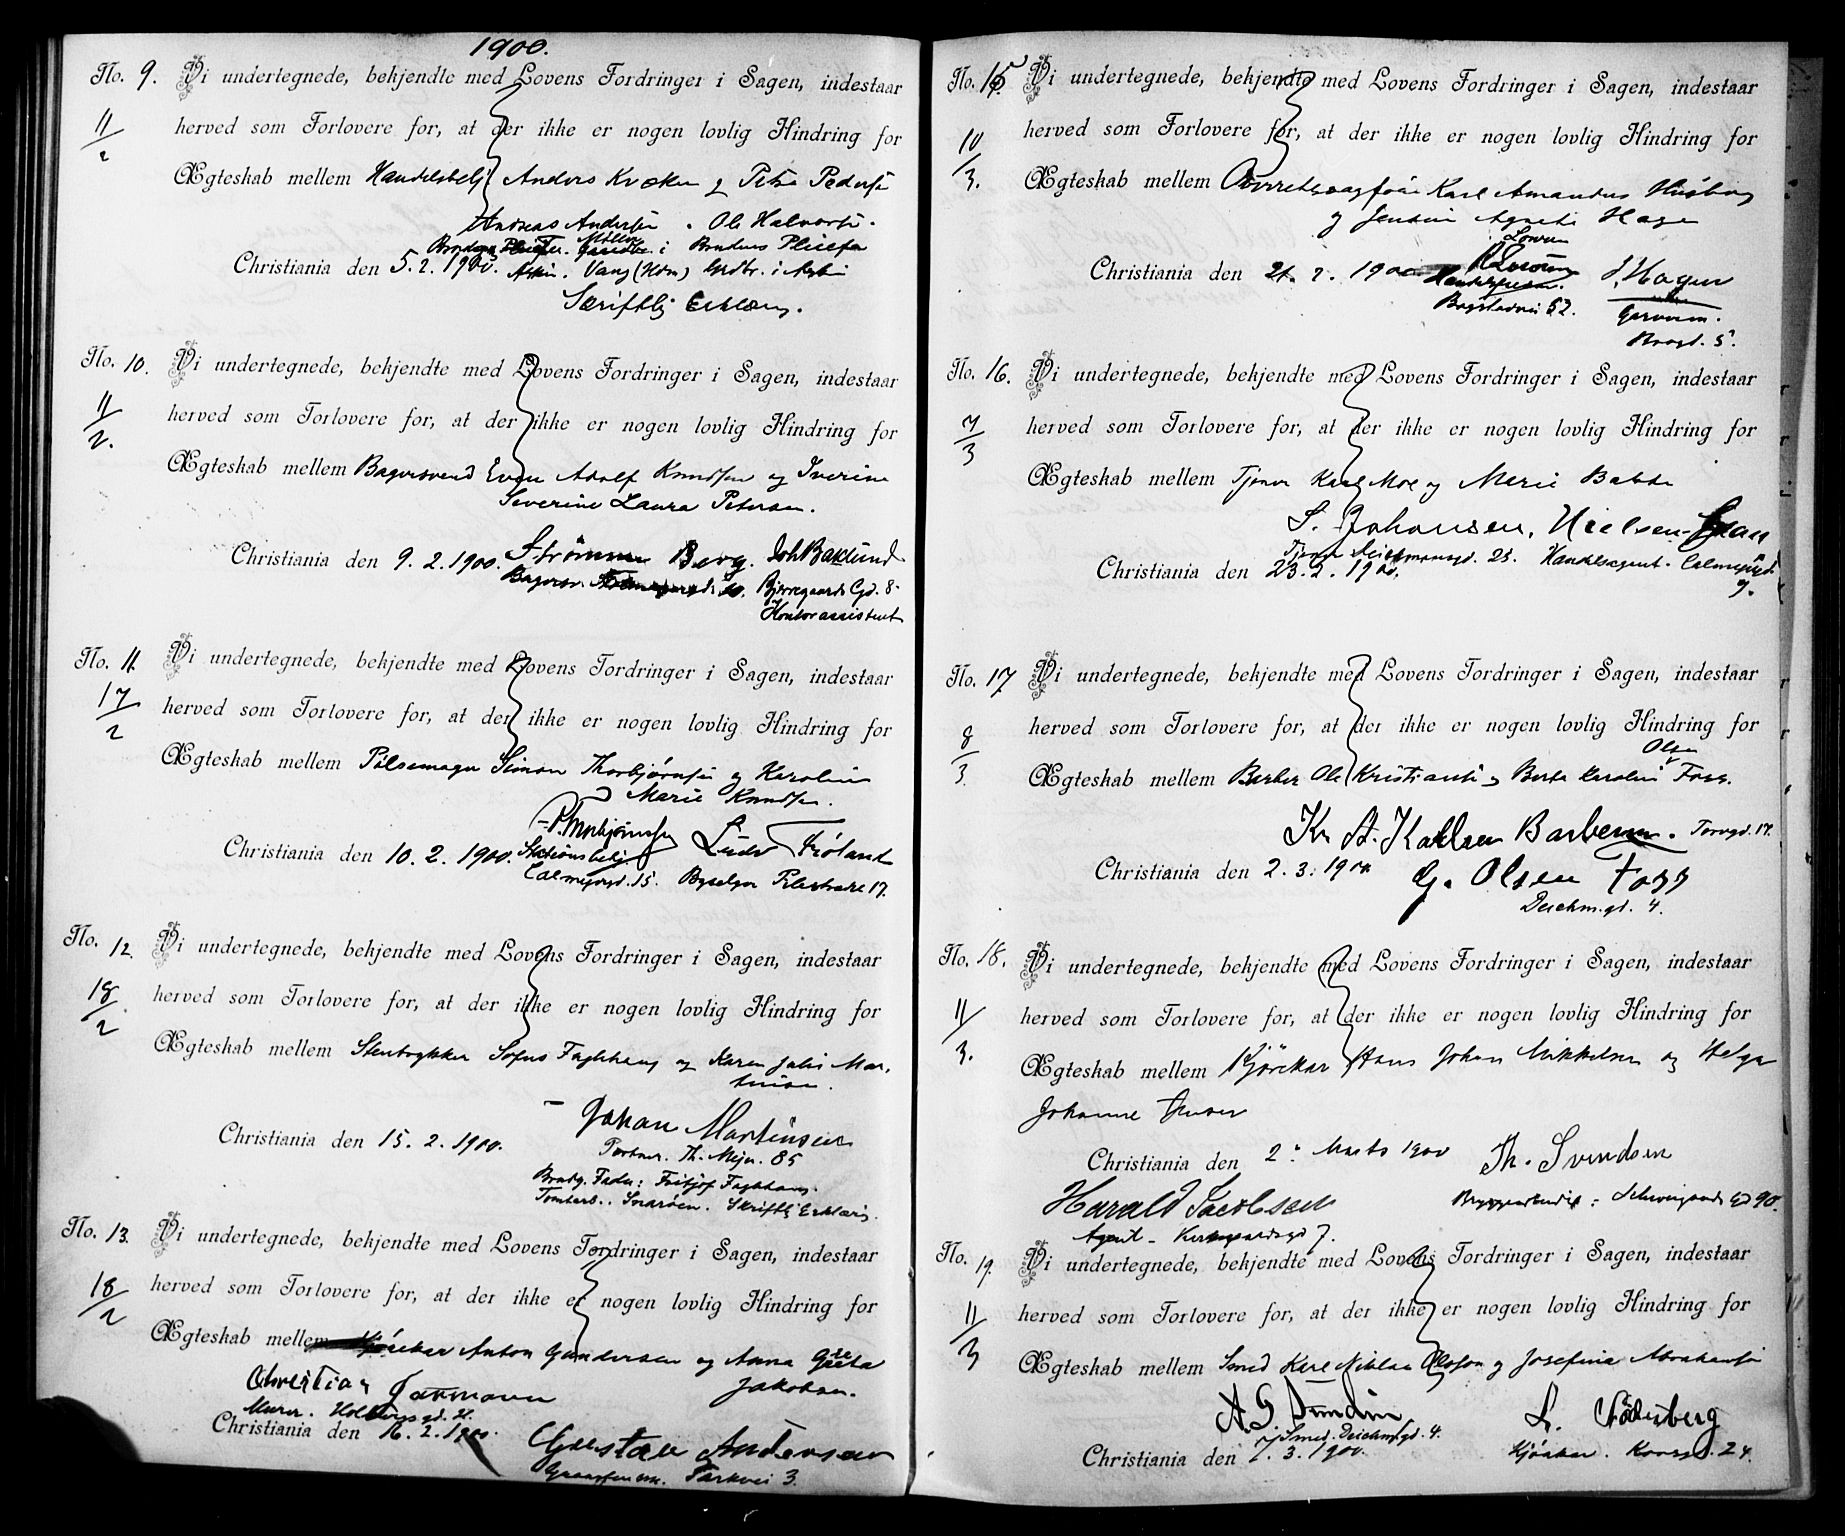 1900.
No. 9. Vi undertegnede, bekjendte med Lovens Fordringer i Sagen, indestaar
11/2 herved som Forlovere for, at der ikke er nogen lovlig Hindring for
Ægteskab mellem Handelsbetj. Anders Kvæken og Petra Pedersen
Andreas Andersen . Ole Halvorsen.
Christiania den 5.2.1900. Vang
Skriftlig Erklæring.
No. 10. Vi undertegnede, bekjendte med Lovens Fordringer i Sagen, indestaar
11/2. herved som Forlovere for, at der ikke er nogen lovlig Hindring for
Ægteskab mellem Bagersvend Even Adolf Knudsen og Iverine
Severine Laura Petersen.
Christiania den 9.2.1900. Strømme Berg. Joh Baklund
Bagersv. Bjerregaards Gd. 8
Kontorassistent
No. 11. Vi undertegnede, bekjendte med Lovens Fordringer i Sagen, indestaar
17/2 herved som Forlovere for, at der ikke er nogen lovlig Hindring for
Ægteskab mellem Pølsemager Simon Thorbjørnsen og Karoline
Marie Knudsen.
P. Thorbjørnssen
Christiania den 10.2.1900. Ludv Frøland
Calmeyergd. 15. Pilestræde 17.
No. 12. Vi undertegnede, bekjendte med Lovens Fordringer i Sagen, indestaar
18/2 herved som Forlovere for, at der ikke er nogen lovlig Hindring for
Ægteskab mellem Stenhugger Sofus Faghhaug og Karen Julie Mar-
tinsen.
Christiania den 15.2.1900. Johan Martinsen
Th. Mejer. 85
Brudg. Fader: Fritjof Faghhaug.
Tomtearb. Snarøen. Skriftlig Erklæring.
No. 13. Vi undertegnede, bekjendte med Lovens Fordringer i Sagen, indestaar
18/2 herved som Forlovere for, at der ikke er nogen lovlig Hindring for
Ægteskab mellem Kjørekar Anton Gundersen og Anna Greta
Jakobsen.
Christian Garmann
Murer. Holbergsgd.
Christiania den 16.2.1900.
Gustav Andersen
Parkvei 3.
No. 15. Vi undertegnede, bekjendte med Lovens Fordringer i Sagen, indestaar
10/3. herved som Forlovere for, at der ikke er nogen lovlig Hindring for
Ægteskab mellem Overretssagfører Karl Amandus Husberg
og Jensine Agnete Hagen
Christiania den 21.2.1900 J. Hagen
Bogstadvei 52. Garverm.
Brogd. 5.
No. 16. Vi undertegnede, bekjendte med Lovens Fordringer i Sagen, indestaar
7/3 herved som Forlovere for, at der ikke er nogen lovlig Hindring for
Ægteskab mellem Tjener Karl Moe og Marie Bakke
S. Johansen, Nielsen-Gran
Tjener Deichmansgd. 25. Handelsagent. Calmeyergd.
Christiania den 23.2.1900. 9.
No. 17 Vi undertegnede, bekjendte med Lovens Fordringer i Sagen, indestaar
8/3. herved som Forlovere for, at der ikke er nogen lovlig Hindring for
Olsen
Ægteskab mellem Barber Ole Kristiansen og Berte Karoline Foss.
Kr A. Karlsen Barberm. Torvgd. 17.
Christiania den 2.3.1900 G. Olsen Foss
Deichm.gd. 4.
No. 18. Vi undertegnede, bekjendte med Lovens Fordringer i Sagen, indestaar
11/3. herved som Forlovere for, at der ikke er nogen lovlig Hindring for
Ægteskab mellem Kjörekar Hans Johan Mikkelsen og Helga
Johanne
Christiania den 2. Marts 1900 Th. Svendsen
Harald Jacobsen Bryggearbeider Schweigaards Gd 90.
Agent - Kirkegaardsgd 7.
No. 19. Vi undertegnede, bekjendte med Lovens Fordringer i Sagen, indestaar
11/3 herved som Forlovere for, at der ikke er nogen lovlig Hindring for
Ægteskab mellem Smed Karl Niklas Olofson og Josefina Abrahamsen
A G Sundin L. Söderberg
Smed. Deichmgd. 4.
Christiania den 7.3.1900. Kjøreker. Korsgd. 24.